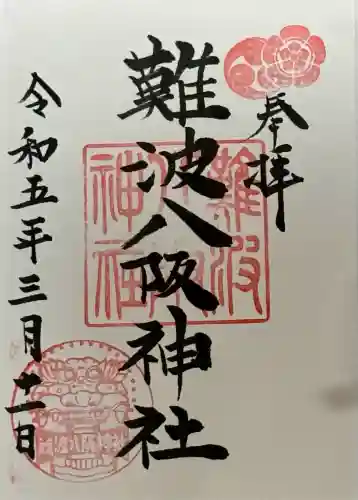 奉拝
難波八阪神社
令和五年三月十一日
難波
八阪
神社